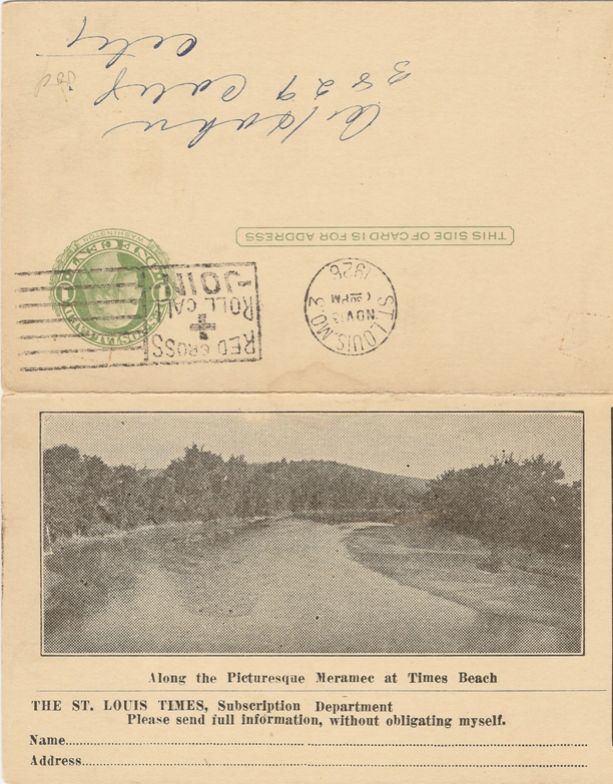 THIS SIDE OF CARD IS FOR ADDRESS
ST. LOUIS, MO. 3
NOV 13
PM
1926
JOIN
RED CROSS
ROLL CALL
WASHINGTON
1
1
3829
City
Along the Picturesque Meramec at Times Beach
THE ST. LOUIS TIMES, Subscription Department
Please send full information, without obligating myself.
Name
Address